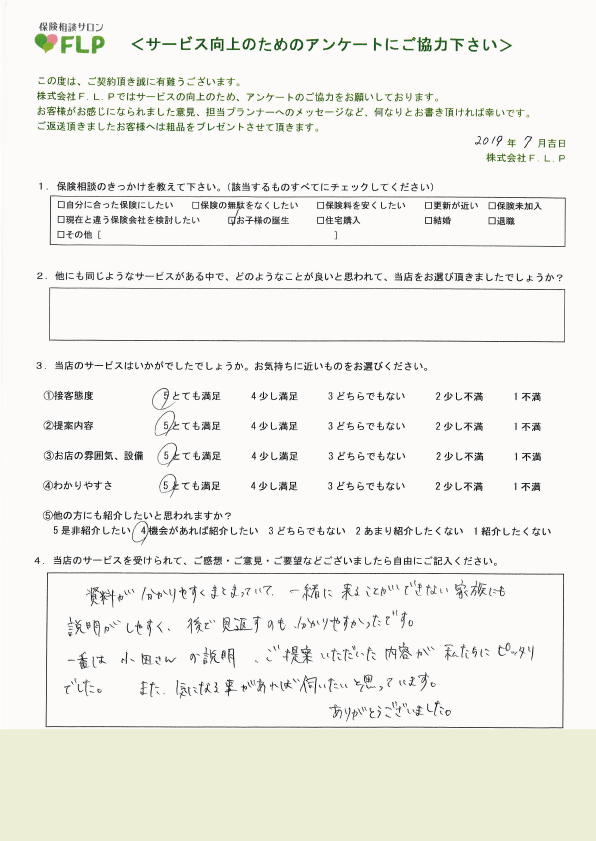 保険相談サロン
FLP
＜サービス向上のためのアンケートにご協力下さい＞
この度は、ご契約頂き誠に有難うございます。
株式会社Ｆ.Ｌ.Ｐではサービスの向上のため、アンケートのご協力をお願いしております。
お客様がお感じになられました意見、担当プランナーへのメッセージなど、何なりとお書き頂ければ幸いです。
ご返送頂きましたお客様へは粗品をプレゼントさせて頂きます。
2019 年 7 月吉日
株式会社Ｆ.Ｌ.Ｐ
１．保険相談のきっかけを教えて下さい。（該当するものすべてにチェックしてください）
□自分に合った保険にしたい □保険の無駄をなくしたい □保険料を安くしたい □更新が近い □保険未加入
□現在と違う保険会社を検討したい ☑お子様の誕生 □住宅購入 □結婚 □退職
□その他［ ］
２．他にも同じようなサービスがある中で、どのようなことが良いと思われて、当店をお選び頂きましたでしょうか？
３．当店のサービスはいかがでしたでしょうか。お気持ちに近いものをお選びください。
①接客態度 5とても満足 4少し満足 3どちらでもない 2少し不満 1不満
②提案内容 5とても満足 4少し満足 3どちらでもない 2少し不満 1不満
③お店の雰囲気、設備 5とても満足 4少し満足 3どちらでもない 2少し不満 1不満
④わかりやすさ 5とても満足 4少し満足 3どちらでもない 2少し不満 1不満
⑤他の方にも紹介したいと思われますか？
5是非紹介したい 4機会があれば紹介したい 3どちらでもない 2あまり紹介したくない 1紹介したくない
４．当店のサービスを受けられて、ご感想・ご意見・ご要望などございましたら自由にご記入ください。
資料が分かりやすくまとまっていて、一緒に来ることができない家族にも
説明がしやすく、後で見返すのも分かりやすかったです。
一番は小田さんの説明、ご提案いただいた内容が私たちにピッタリ
でした。 また、気になる事があれば伺いたいと思っています。
ありがとうございました。